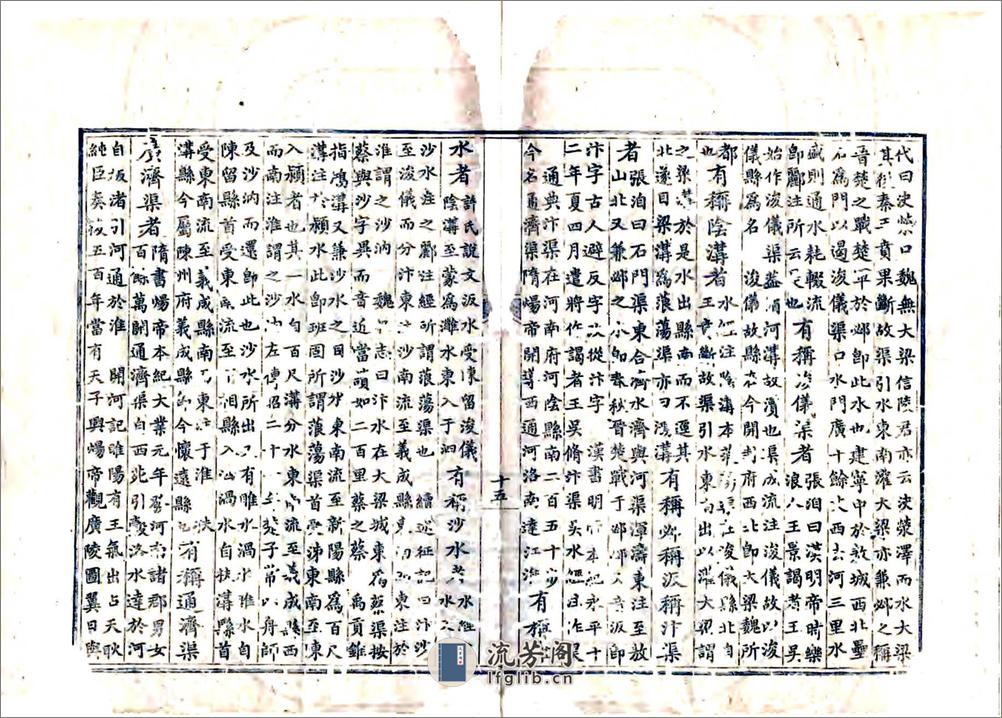 代曰決滎口魏無大梁信陵君亦云決滎澤而水大梁
其後秦王賁果斷故渠引水東南灌大梁亦兼邲之稱
晉楚之戰楚軍於邲即此水也建寧中於敖城西北壘
石為門以遏浚儀渠口水門廣十餘丈西去河三里水
盛則通水耗輟流
即酈注所云
有稱浚儀渠者
張洎曰漢明帝時樂
浪人王景謁者王吳
始作浚儀渠蓋循河溝故瀆也渠成流注浚儀故以浚
儀縣為名 浚儀故縣在今開封府西北即大梁魏所
都也
有稱陰溝者
水經注陰溝本
浚儀縣北自
王賁斷故渠引水東南出以灌大梁謂
之梁溝於是水出縣南而不逕其
北遂目梁溝為蒗蕩渠亦曰
有稱邲稱汳稱汴渠
者
張洎曰石門渠東合濟水與河渠渾濤東注至敖
山北又兼邲之水即春秋晉楚戰于邲邲又音汳即
汴字古人避反字故從汴字 漢書明帝本紀永平十
二年夏四月遣將作謁者王吳脩汴渠
通典汴渠在河南府河陰縣南二百五十步
今名通濟渠隋煬帝開導西通河洛南達江淮
有稱
十五
水者
許氏說文汳水受陳留浚儀
陰溝至蒙為灉水東入于泗
有稱沙水者
沙水
之酈注經所謂蒗蕩渠也 續述征記曰汴沙
至浚儀而分汴東注沙南流至義成縣
東注於
淮謂之沙汭 魏志曰汴水在大梁城東為蔡渠按
蔡與沙字異而音近當
如二百里蔡之蔡
指鴻溝又兼沙水之目沙水東南流至新陽縣為百尺
溝注於潁水此即班固所謂蒗蕩渠首受泲東南至東
入潁者也其一水自百尺溝分水東南流至義成縣西
而南注淮謂之沙汭左傳昭二十
楚子常以舟師
及沙汭而還即此也沙水所出又有睢水渦水睢水自
陳留縣首受東
流至
相縣入泗渦水自扶溝縣首
受東南流至義成縣南
東注于淮
扶
溝縣今屬陳州府義成縣即今懷遠縣
有稱通濟渠
廣濟渠者
隋書煬帝本紀大業元年發河南諸郡男女
百餘萬開通濟渠自西苑引穀洛水達於河
自板渚引河通於淮 開河記睢陽有王氣出占天耿
純臣奏後五百年當有天子興煬帝觀廣陵圖翼日與
流芳閣
lfglib.cn